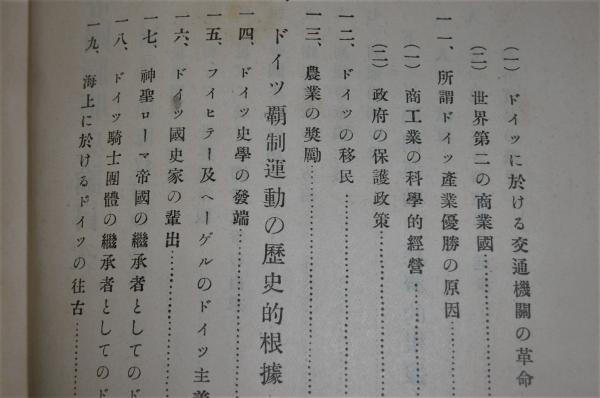 (一) ドイツに於ける交通機關の革命
(二) 世界第二の商業國
一一、所謂ドイツ産業優勝の原因
(一) 商工業の科學的經營
(二) 政府の保護政策
一二、ドイツの移民
一三、農業の奬勵
ドイツ覇制運動の歷史的根據
一四、ドイツ史學の發端
一五、フイヒテー及ヘーゲルのドイツ主義
一六、ドイツ國史家の輩出
一七、神聖ローマ帝國の繼承者としてのド
一八、ドイツ騎士團體の繼承者としてのド
一九、海上に於けるドイツの往古